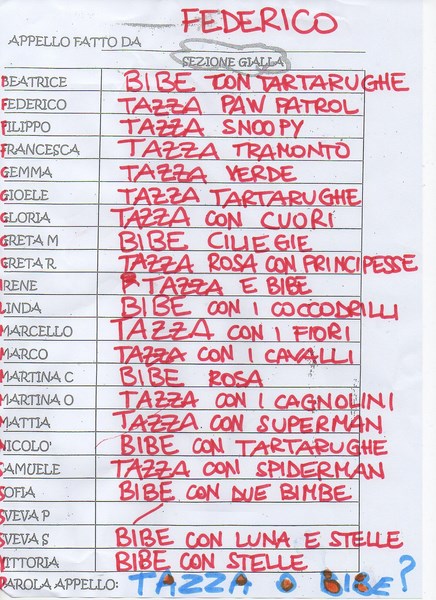 APPELLO FATTO DA FEDERICO
SEZIONE GIALLA
BEATRICE BIBE CON TARTARUGHE
FEDERICO TAZZA PAW PATROL
FILIPPO TAZZA SNOOPY
FRANCESCA TAZZA TRAMONTO
GEMMA TAZZA VERDE
GIOELE TAZZA TARTARUGHE
GLORIA TAZZA CON CUORI
GRETA M BIBE CILIEGIE
GRETA R TAZZA ROSA CON PRINCIPESSE
IRENE TAZZA E BIBE
LINDA BIBE CON I COCCODRILLI
MARCELLO TAZZA CON I FIORI
MARCO TAZZA CON I CAVALLI
MARTINA C BIBE ROSA
MARTINA O TAZZA CON I CAGNOLINI
MATTIA TAZZA CON SUPERMAN
NICOLO' BIBE CON TARTARUGHE
SAMUELE TAZZA CON SPIDERMAN
SOFIA BIBE CON DUE BIMBE
SVEVA P
SVEVA S BIBE CON LUNA E STELLE
VITTORIA BIBE CON STELLE
PAROLA APPELLO: TAZZA O BIBE?